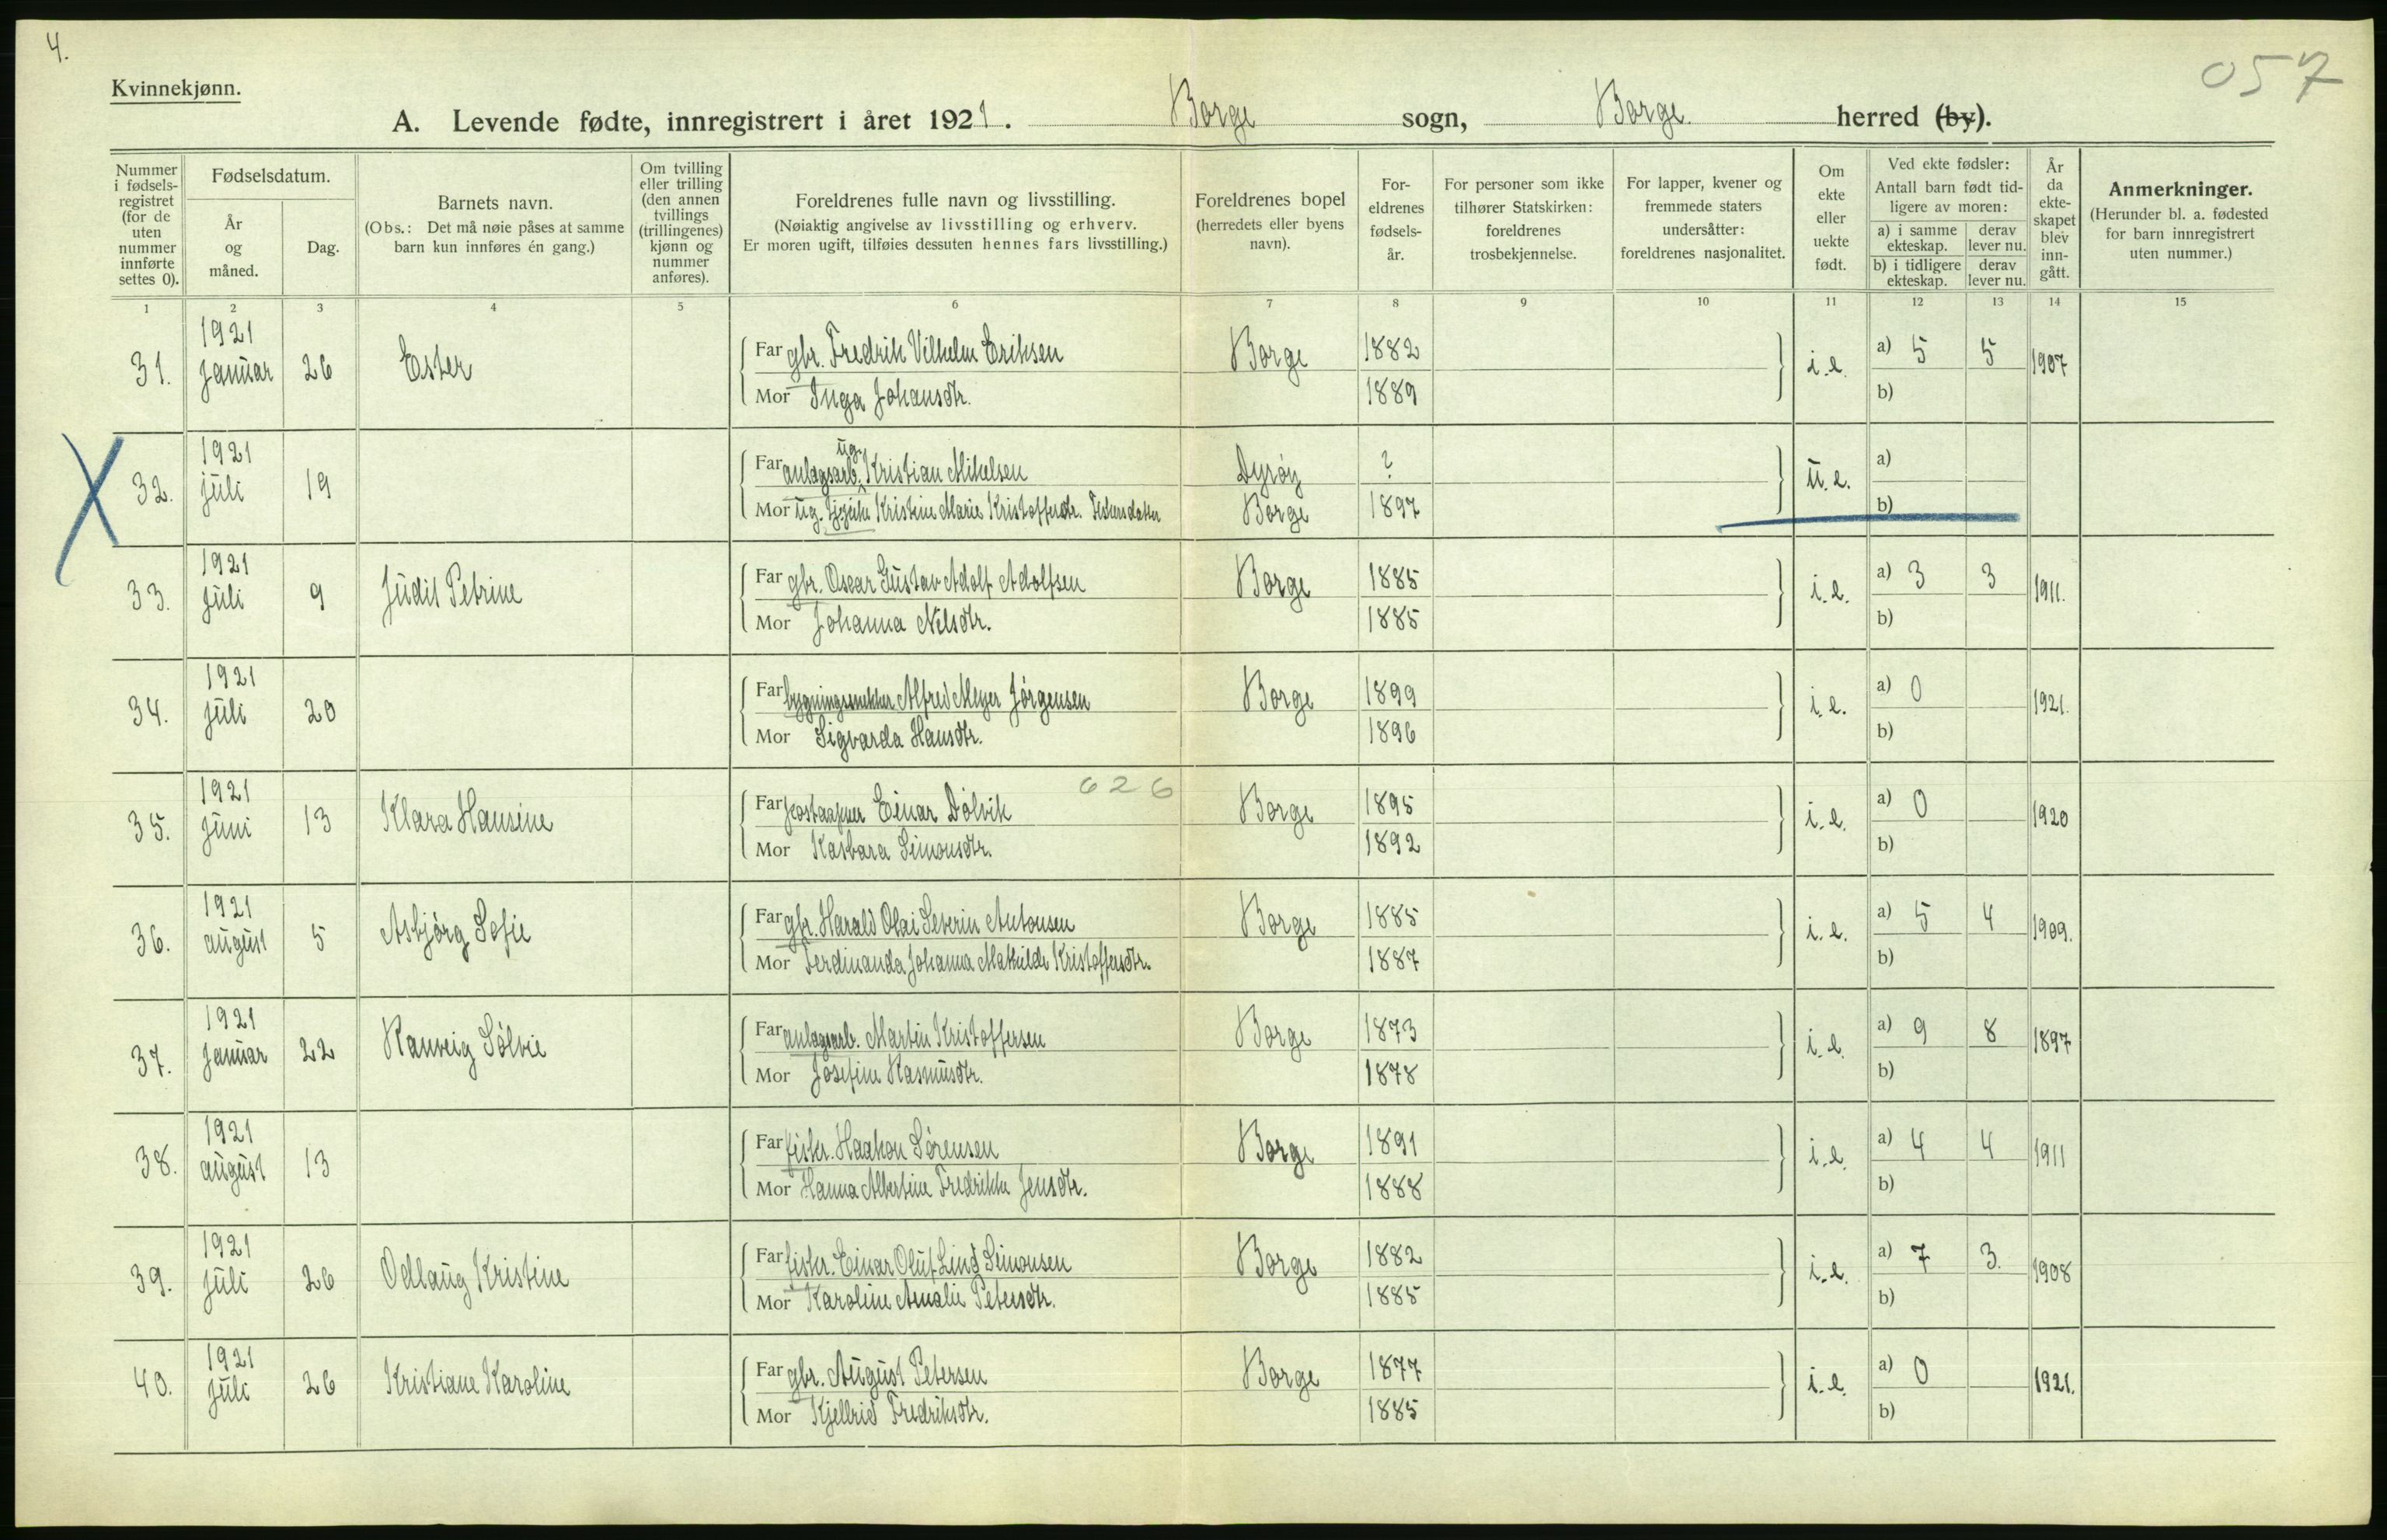 4.
057
Kvinnekjønn.
A. Levende fødte, innregistrert i året 1921. Borge sogn, Borge. herred (by).
Nummer i fødsels-registret (for de uten nummer innførte settes 0).
Fødselsdatum.
År og måned.
Dag.
Barnets navn.
(Obs.: Det må nøie påses at samme barn kun innføres én gang.)
Om tvilling eller trilling (den annen tvillings (trillingenes) kjønn og nummer anføres).
Foreldrenes fulle navn og livsstilling.
(Nøiaktig angivelse av livsstilling og erhverv.
Er moren ugift, tilføies dessuten hennes fars livsstilling.)
Foreldrenes bopel (herredets eller byens navn).
For-eldrenes fødsels-år.
For personer som ikke tilhører Statskirken: foreldrenes trosbekjennelse.
For lapper, kvener og fremmede staters undersåtter: foreldrenes nasjonalitet.
Om ekte eller uekte født.
Ved ekte fødsler:
Antall barn født tid-ligere av moren:
a) i samme ekteskap.
derav lever nu.
b) i tidligere ekteskap.
derav lever nu.
År da ekte-skapet blev inn-gått.
Anmerkninger.
(Herunder bl. a. fødested for barn innregistrert uten nummer.)
1 2 3 4 5 6 7 8 9 10 11 12 13 14 15
31. 1921 Januar 26 Ester Far gbr. Fredrik Vilhelm Eriksen Borge 1882 i.e. a) 5 5 1907
Mor Inga Johansdtr. 1889 b)
32. 1921 juli 19 Far anlagsarb. ug. Kristian Mikelsen Dyrøy ? u.e. a)
Mor ug. Kristine Marie Kristoffersdtr. Fiskersdatter Borge 1897 b)
33. 1921 juli 9 Judit Petrine Far gbr. Oscar Gustav Adolf Adolfsen Borge 1885 i.e. a) 3 3 1911.
Mor Johanna Nilsdtr. 1885 b)
34. 1921 juli 20 Far bygningssnekker Alfred Meyer Jörgensen Borge 1899 i.e. a) 0 1921.
Mor Sigvarda Hansdtr. 1896 b)
626
35. 1921 juni 13 Klara Hansine Far Einar Dólvik Borge 1895 i.e. a) 0 1920
Mor Kasbara Simonsdtr. 1892 b)
36. 1921 august 5 Asbjörg Sofie Far gbr. Harald Olai Severin Antonsen Borge 1885 i.e. a) 5 4 1909.
Mor Ferdinanda Johanna Matilde Kristoffersdtr. 1887 b)
37. 1921 Januar 22 Ranveig Sólvie Far anlagsarb. Martin Kristoffersen Borge 1873 i.e. a) 9 8 1897
Mor Josefine Rasmusdtr. 1878 b)
38. 1921 august 13 Far fisker. Haakon Sörensen Borge 1891 i.e. a) 4 4 1911
Mor Hanna Albertine Fredrikke Jensdtr. 1888 b)
39. 1921 juli 26 Odlaug Kristine Far fisker. Einar Oluf Lind Simonsen Borge 1882 i.e. a) 7 3. 1908
Mor Karoline Amalie Petersdtr. 1885 b)
40. 1921 juli 26 Kristiane Karoline Far gbr. August Petersen Borge 1877 i.e. a) 0 1921.
Mor Kjellrid Fredriksdtr. 1885 b)